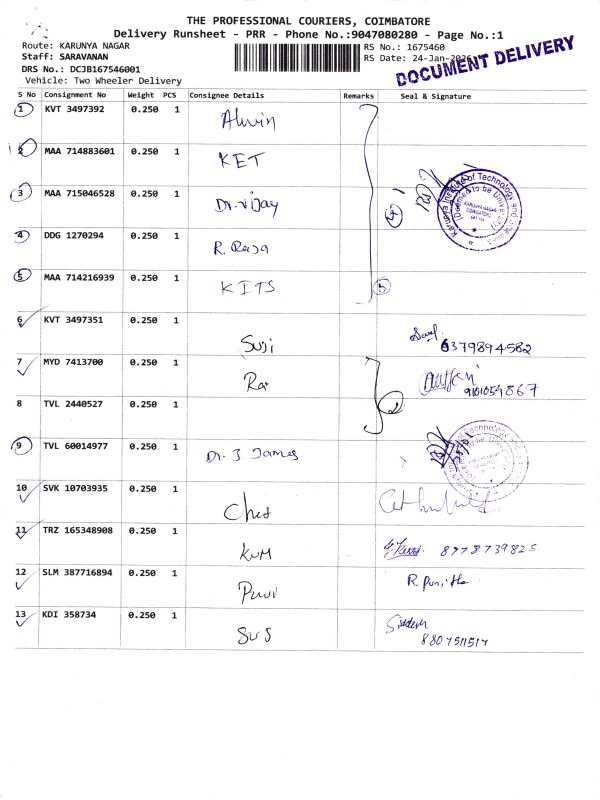 THE PROFESSIONAL COURIERS, COIMBATORE
Delivery Runsheet - PRR - Phone No.:9047080280 - Page No.:1
Route: KARUNYA NAGAR
RS No.: 1675460
Staff: SARAVANAN
RS Date: 24-Jan-2026
DRS No.: DCJB167546001
Vehicle: Two Wheeler Delivery
DOCUMENT DELIVERY
S No Consignment No Weight PCS Consignee Details Remarks Seal & Signature
1 KVT 3497392 0.250 1 Alwin
2 MAA 714883601 0.250 1 KET
3 MAA 715046528 0.250 1 Dr. Vijay
4 DDG 1270294 0.250 1 R. Raja
5 MAA 714216939 0.250 1 KITS
Karunya Institute of Technology and Sciences
(Deemed to be University)
KARUNYA NAGAR
COIMBATORE
6 KVT 3497351 0.250 1 Suji 6379894582
7 MYD 7413700 0.250 1 Raj 9101054867
8 TVL 2440527 0.250 1
9 TVL 60014977 0.250 1 Dr. J James
10 SVK 10703935 0.250 1
11 TRZ 165348908 0.250 1 KUM 8978739825
12 SLM 387716894 0.250 1
13 KDI 358734 0.250 1 SUS
8807511517